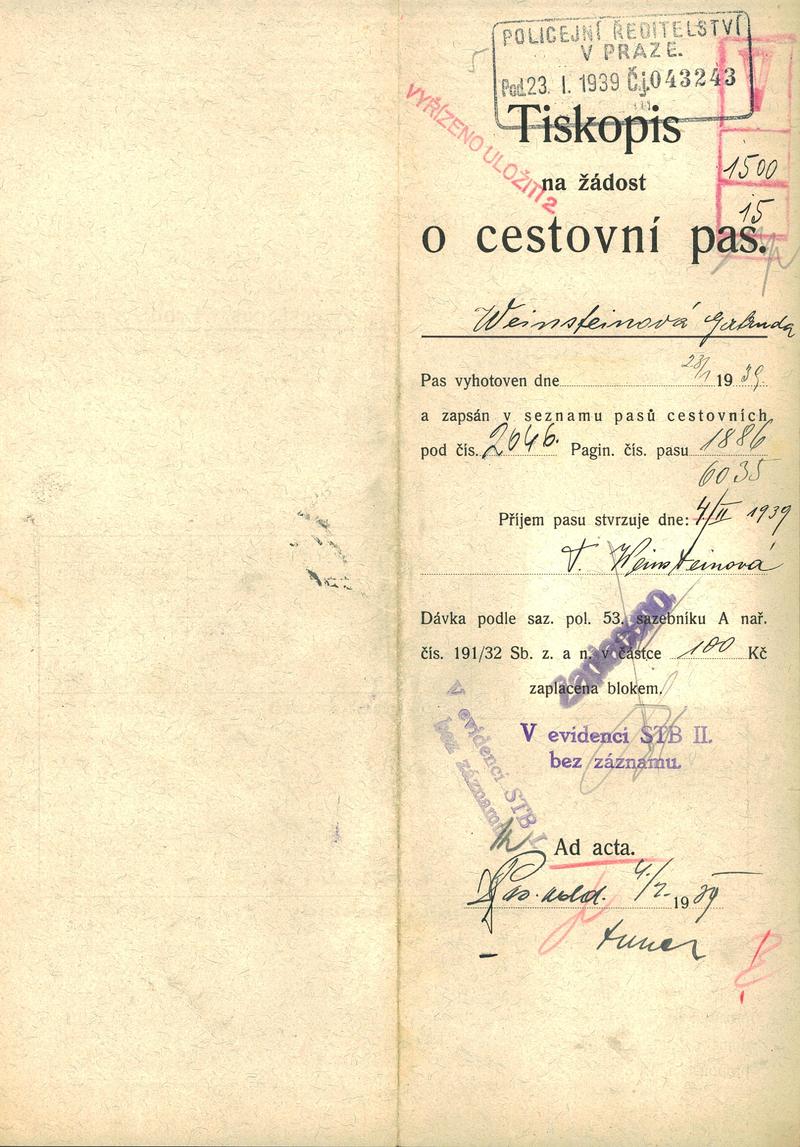 POLICEJNÍ ŘEDITELSTVÍ
V PRAZE.
Pod. 23. I. 1939 Č.j. 043243
VYŘÍZENO ULOŽITI 2
Tiskopis
na žádost
o cestovní pas.
1500
15
Weinsteinová Gertruda
Pas vyhotoven dne 28/1 1939.
a zapsán v seznamu pasů cestovních
pod čís. 2646. Pagin. čís. pasu 1886
6035
Příjem pasu stvrzuje dne: 4/II 1939
Weinsteinová
Dávka podle saz. pol. 53, sazebníku A nař.
čís. 191/32 Sb. z. a n. v částce 100 Kč
zaplacena blokem.
Zaplaceno.
V evidenci STB II.
bez záznamu.
V evidenci STB I.
bez záznamu
Ad acta.
4/2 1939